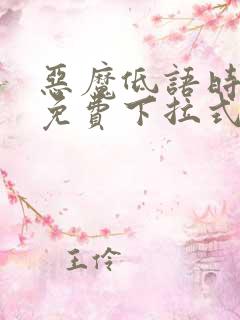 惡魔低語時
免費下拉式
王伶